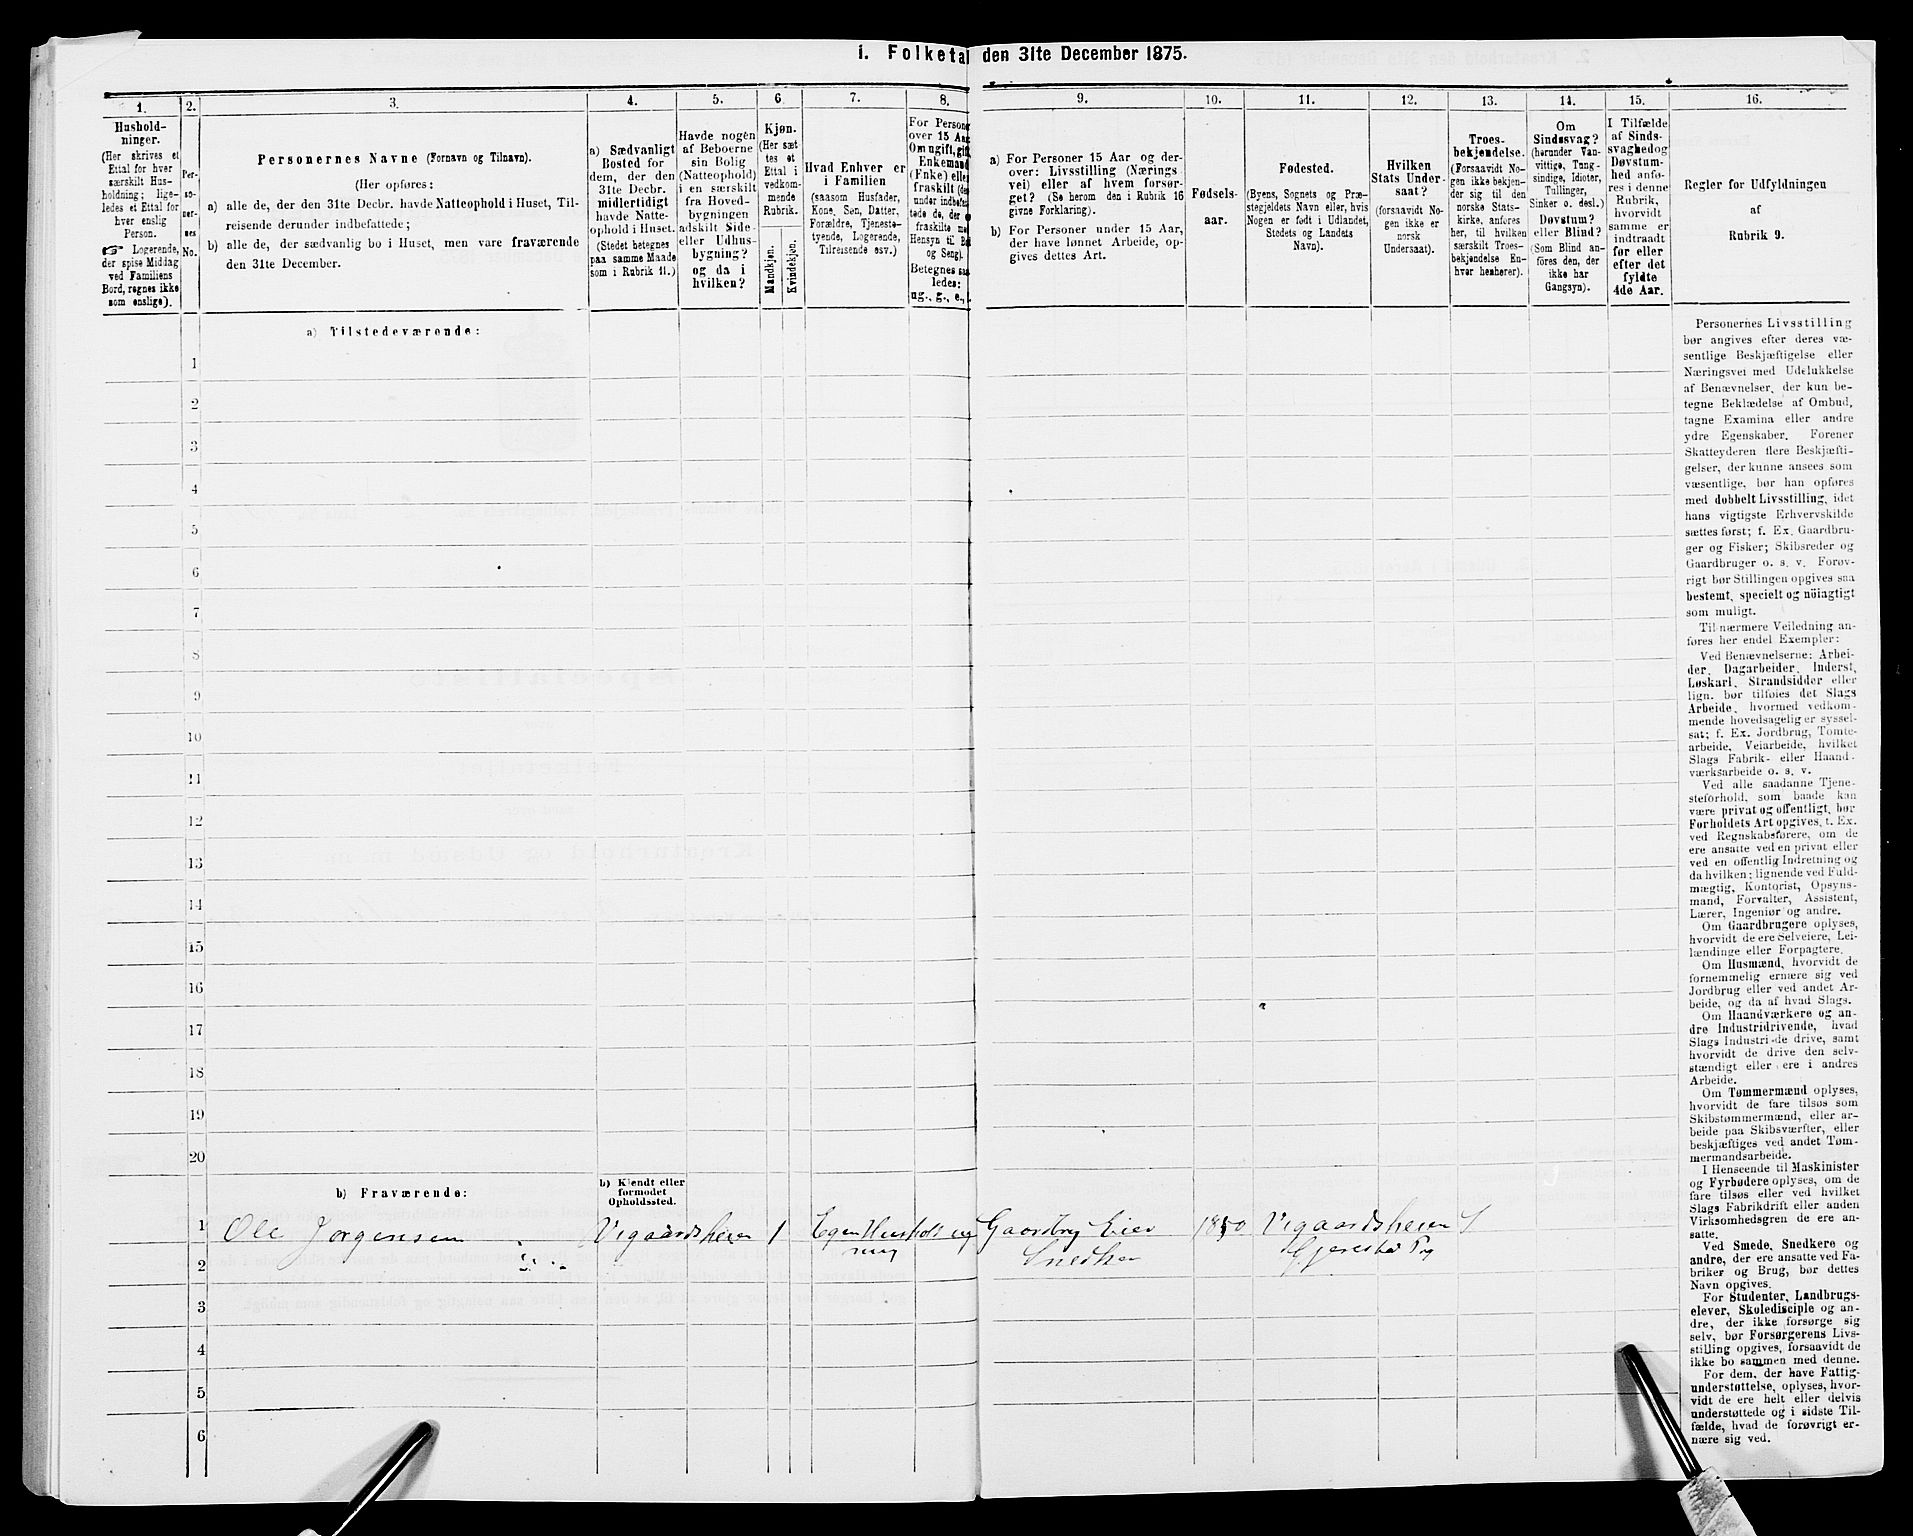 1. Folketal den 31te December 1875.
1.
2.
3.
4.
5.
6.
7.
8.
9.
10.
11.
12.
13.
14.
15.
16.
Hushold-
ninger.
(Her skrives et
Ettal for hver
særskilt Hus-
holdning; lige-
ledes et Ettal for
hver enslig
Person.
☞ Logerende,
der spise Middag
ved Familiens
Bord, regnes ikke
som enslige).
Per-
so-
ner-
nes
No.
Personernes Navne (Fornavn og Tilnavn).
(Her opføres:
a) alle de, der den 31te Decbr. havde Natteophold i Huset, Til-
reisende derunder indbefattede;
b) alle de, der sædvanlig bo i Huset, men vare fraværende
den 31te December.
a) Sædvanligt
Bosted for
dem, der den
31te Decbr.
midlertidigt
havde Natte-
ophold i Huset.
(Stedet betegnes
paa samme Maade
som i Rubrik 11.)
Havde nogen
af Beboerne
sin Bolig
(Natteophold)
i en særskilt
fra Hoved-
bygningen
adskilt Side-
eller Udhus-
bygning?
og da i
hvilken?
Kjøn.
(Her sæt
tes et
Ettal i
vedkom-
mende
Rubrik.
Mandkjøn.
Kvindekjøn.
Hvad Enhver er
i Familien
(saasom Husfader,
Kone, Søn, Datter,
Forældre, Tjeneste-
tyende, Logerende,
Tilreisende osv.)
For Persone
over 15 Aar
Om ugift, gift
Enkemand
(Enke) eller
fraskilt (de
under indbefat-
tede de, der
fraskilte m
Hensyn til B
og Seng).
Betegnes saa
ledes:
ug., g., e.,
a) For Personer 15 Aar og der-
over: Livsstilling (Nærings
vei) eller af hvem forsør-
get? (Se herom den i Rubrik 16
givne Forklaring).
b) For Personer under 15 Aar,
der have lønnet Arbeide, op-
gives dettes Art.
Fødsels-
aar.
Fødested.
(Byens, Sognets og Præ-
stegjeldets Navn eller, hvis
Nogen er født i Udlandet,
Stedets og Landets
Navn).
Hvilken
Stats Under-
saat?
(forsaavidt No-
gen ikke er
norsk
Undersaat).
Troes-
bekjendelse.
(Forsaavidt No-
gen ikke bekjen-
der sig til den
norske Stats-
kirke, anføres
her, til hvilken
særskilt Troes-
bekjendelse En-
hver henhører).
Om
Sindssvag?
(herunder Van-
vittige, Tung-
sindige, Idioter,
Tullinger,
Sinker o. desl.)
Døvstum?
eller Blind?
(Som Blind an-
føres den, der
ikke har
Gangsyn).
I Tilfælde
af Sinds-
svaghed og
Døvstum-
hed anfø-
res i denne
Rubrik,
hvorvidt
samme er
indtraadt
før eller
efter det
fyldte
4de Aar.
Regler for Udfyldningen
af
Rubrik 9.
a) Tilstedeværende:
1
2
3
4
5
6
7
8
9
10
11
12
13
14
15
16
17
18
19
20
b) Fraværende:
b) Kjendt eller
formodet
Opholdssted.
1 Ole Jørgensen Vegaardsheien 1 Egen Husholdning Gaardbrug Eier 1850 Vegaardsheien
2 Snedker Gjerestad Pg
3
4
5
6
Personernes Livsstilling
bør angives efter deres væ-
sentlige Beskjæftigelse eller
Næringsvei med Udelukkelse
af Benævnelser, der kun be-
tegne Beklædelse af Ombud,
tagne Examina eller andre
ydre Egenskaber. Forener
Skatteyderen flere Beskjæfti-
gelser, der kunne ansees som
væsentlige, bør han opføres
med dobbelt Livsstilling, idet
hans vigtigste Erhvervskilde
sættes først; f. Ex. Gaardbru-
ger og Fisker; Skibsreder og
Gaardbruger o. s. v. Forøv-
rigt bør Stillingen opgives saa
bestemt, specielt og nöiagtigt
som muligt.
Til nærmere Veiledning an-
føres her endel Exempler:
Ved Benævnelserne: Arbei-
der, Dagarbeider, Inderst,
Løskarl, Strandsidder eller
lign. bør tilføies det Slags
Arbeide, hvormed vedkom-
mende hovedsagelig er syssel-
sat; f. Ex. Jordbrug, Tomte-
arbeide, Veiarbeide, hvilket
Slags Fabrik- eller Haand-
værksarbeide o. s. v.
Ved alle saadanne Tjene-
steforhold, som baade kan
være privat og offentligt, bør
Forholdets Art opgives, t. Ex.
ved Regnskabsførere, om de
ere ansatte ved en privat eller
ved en offentlig Indretning og
da hvilken; lignende ved Fuld-
mægtig, Kontorist, Opsyns-
mand, Forvalter, Assistent,
Lærer, Ingeniør og andre.
Om Gaardbrugere oplyses,
hvorvidt de ere Selveiere, Lei-
lændinge eller Forpagtere.
Om Husmænd, hvorvidt de
fornemmelig ernære sig ved
Jordbrug eller ved andet Ar-
beide, og da af hvad Slags.
Om Haandværkere og an-
dre Industridrivende, hvad
Slags Industri de drive, samt
hvorvidt de drive den selv-
stændigt eller ere i andres
Arbeide.
Om Tømmermænd oplyses,
hvorvidt de fare tilsøs som
Skibstømmermænd, eller ar-
beide paa Skibsværfter, eller
beskjæftiges ved andet Tøm-
mermandsarbeide.
I Henseende til Maskinister
og Fyrbødere oplyses, om de
fare tilsøs eller ved hvilket
Slags Fabrikdrift eller anden
Virksomhedsgren de ere an-
satte.
Ved Smede, Snedkere og
andre, der ere ansatte ved Fa-
briker og Brug, bør dettes
Navn opgives.
For Studenter, Landbrugs-
elever, Skoledisciple og an-
dre, der ikke forsørge sig
selv, bør Forsørgerens Livs-
stilling opgives, forsaavidt de
ikke bo sammen med denne.
For dem, der have Fattig-
understøttelse, oplyses, hvor-
vidt de ere helt eller delvis
understøttede og i sidste Til-
fælde, hvad de forøvrigt er-
nære sig ved.